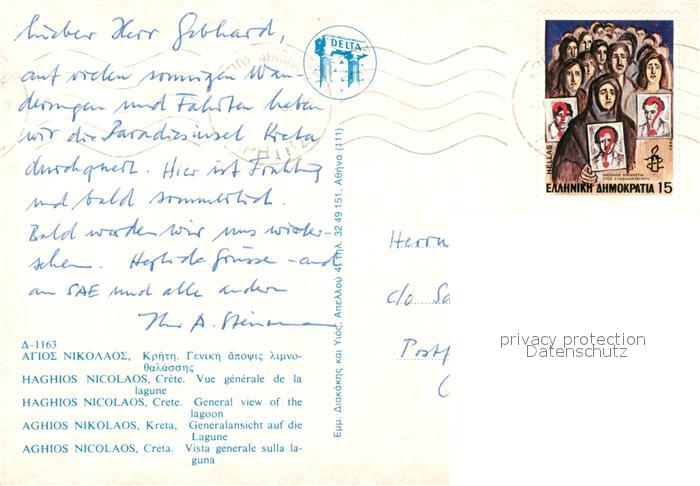 Lieber Herr Gebhard,
auf vielen sonnigen Wan-
derungen und Fahrten haben
wir die Paradiesinsel Kreta
durchquert. Hier ist Frühling
und bald sommerlich.
Bald werden wir uns wieder-
sehen. Herzliche Grüsse - auch
an SAE und alle andern
Ihr A.
DELTA
HELLAS
ΔΙΕΘΝΗΣ ΑΜΝΗΣΤΙΑ
ΕΤΟΣ ΕΞΑΦΑΝΙΣΜΕΝΩΝ
ΕΛΛΗΝΙΚΗ ΔΗΜΟΚΡΑΤΙΑ 15
Εμμ. Διακάκης και Υιός, Απελλού 4, τηλ. 32 49 151, Αθήνα (111)
Herrn
c/o
Postf
privacy protection
Datenschutz
Δ-1163
ΑΓΙΟΣ ΝΙΚΟΛΑΟΣ, Κρήτη. Γενική άποψις λιμνο-
θαλάσσης
HAGHIOS NICOLAOS, Crète. Vue générale de la
lagune
HAGHIOS NICOLAOS, Crete. General view of the
lagoon
AGHIOS NIKOLAOS, Kreta, Generalansicht auf die
Lagune
AGHIOS NICOLAOS, Creta. Vista generale sulla la-
guna